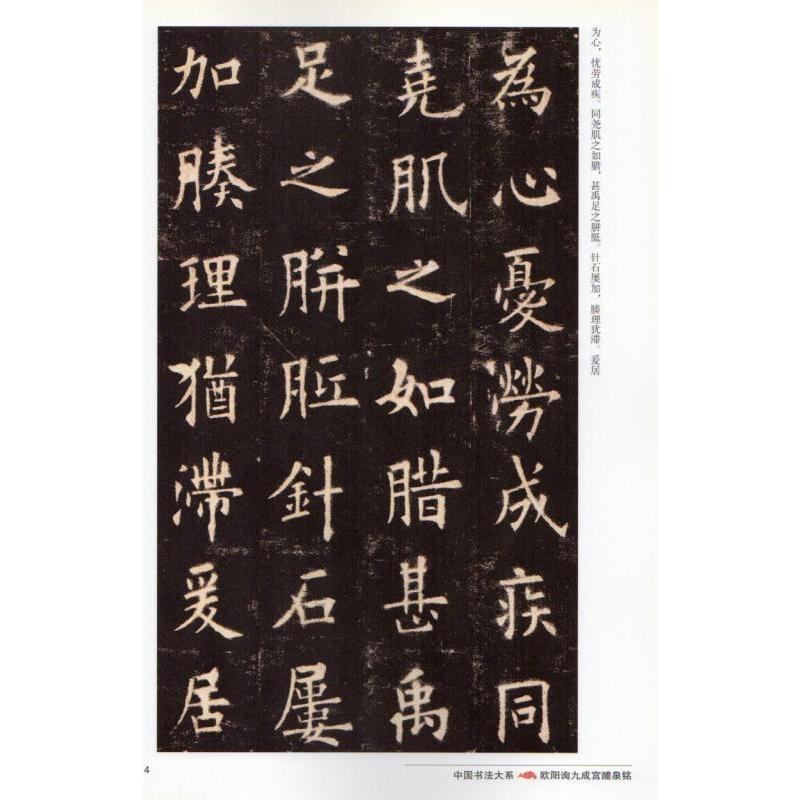 為心憂勞成疾同
堯肌之如腊甚禹
足之胼胝針石屢
加腠理猶滯爰居
为心，忧劳成疾。同尧肌之如腊，甚禹足之胼胝。针石屡加，腠理犹滞。爰居
4
中国书法大系 欧阳询九成宫醴泉铭